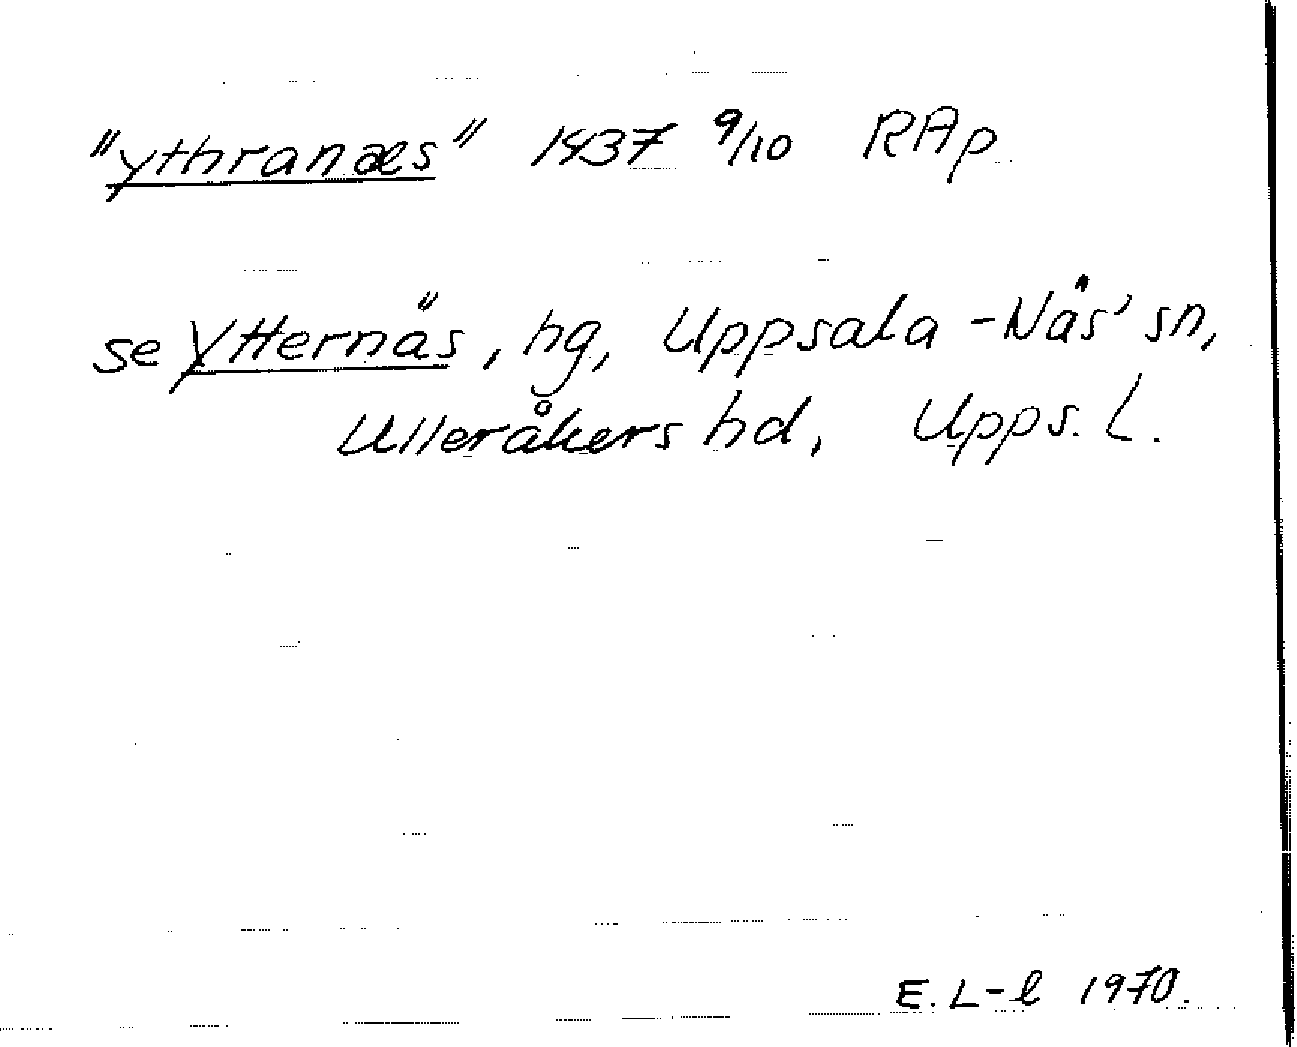 "ythranæs" 1437 9/10 RAp.
se Ytternäs, hg, Uppsala-Näs' sn,
Ulleråkers hd, Upps. L.
E. L-l 1970.